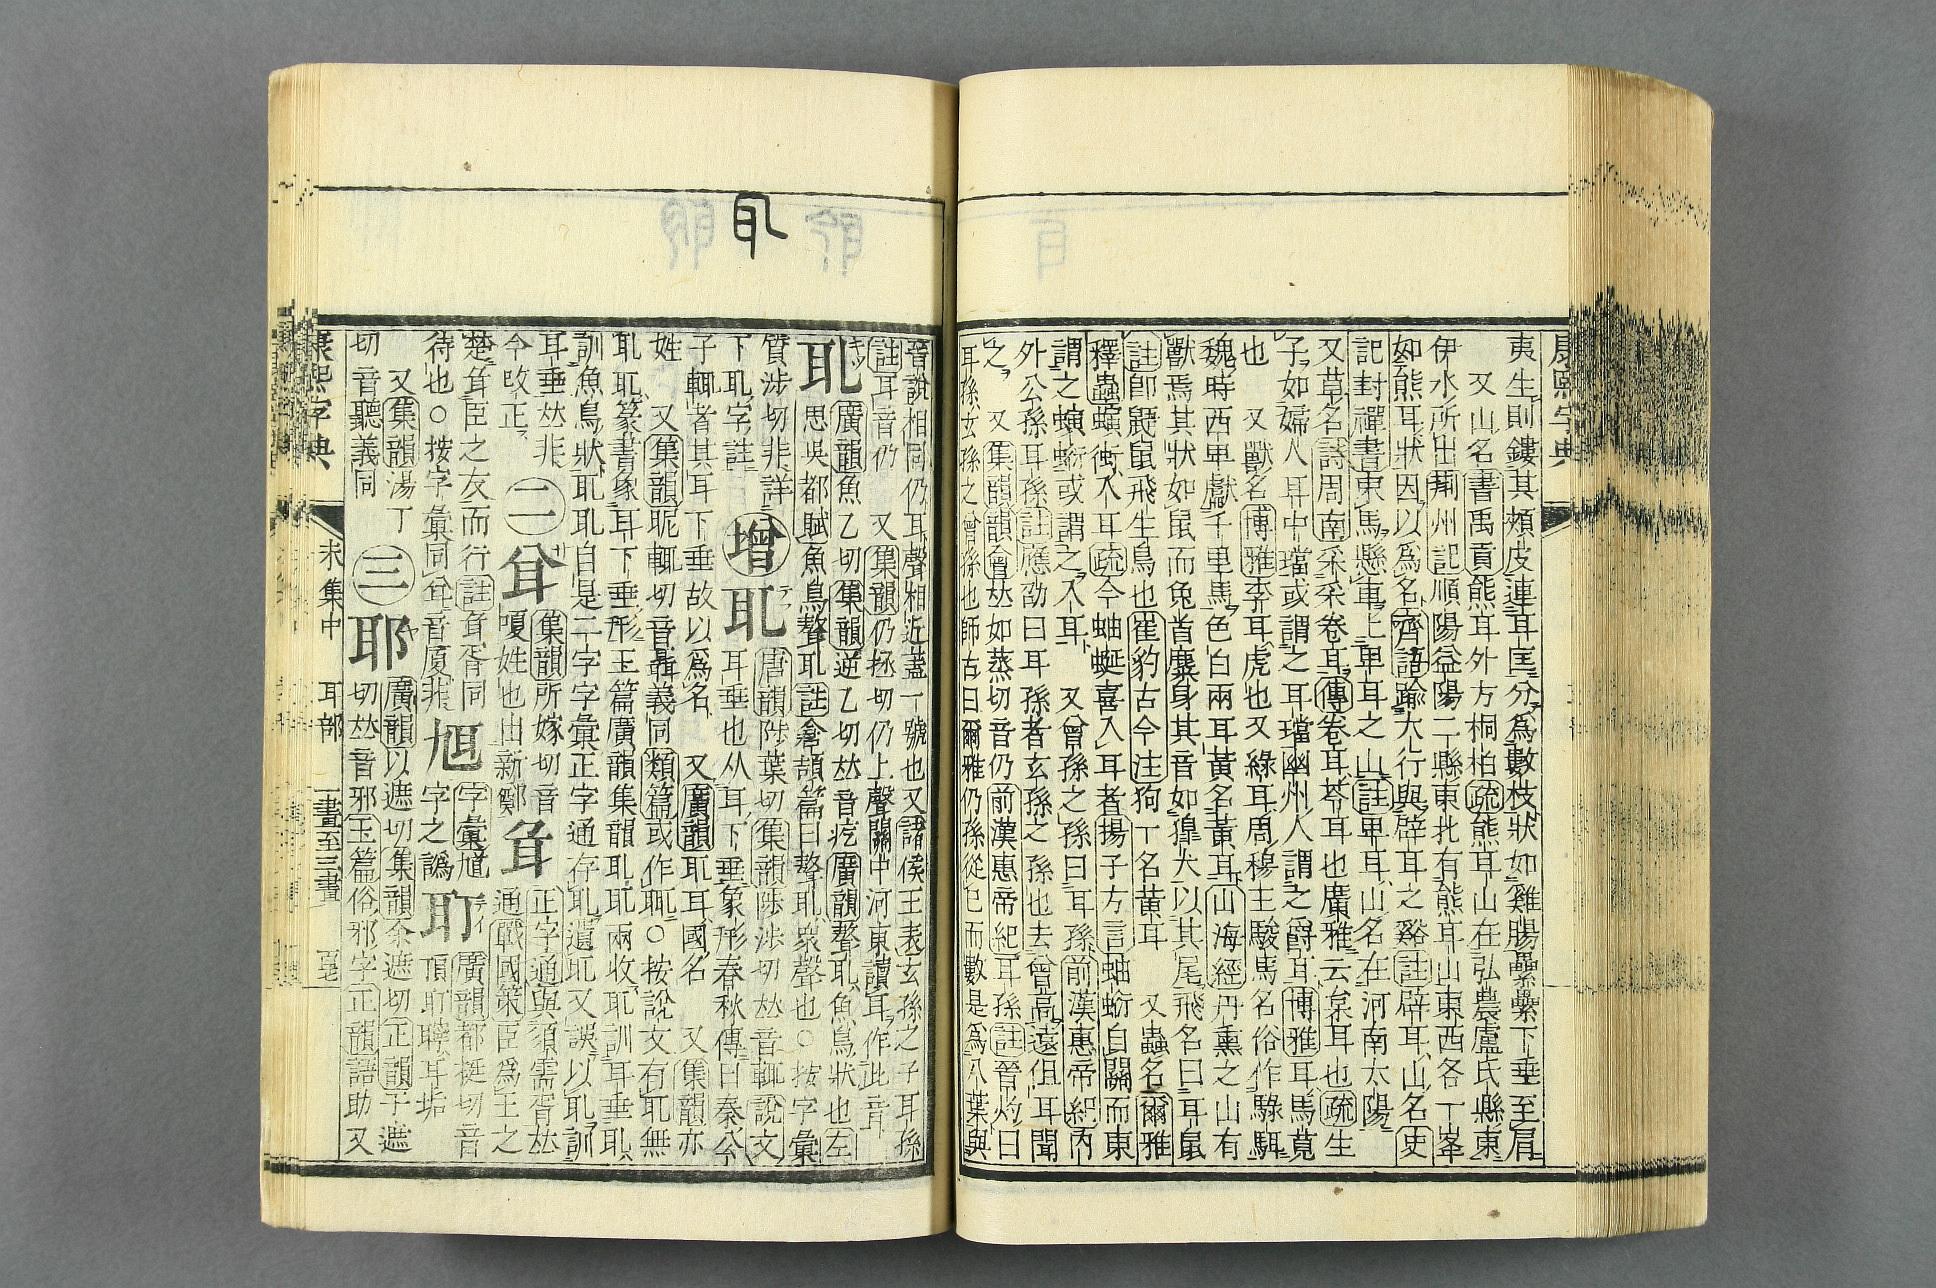 康熙字典
夷生則鏤其頰皮連耳匡分爲數枝狀如雞腸纍纍下垂至肩
又山名書禹貢熊耳外方桐柏疏熊耳山在弘農盧氏縣東
伊水所出荆州記順陽益陽二縣東北有熊耳山東西各一峯
如熊耳狀因以爲名齊語踰大行與辟耳之谿註辟耳山名史
記封禪書束馬懸車上卑耳之山註卑耳山名在河南太陽
又草名詩周南采采卷耳傳卷耳苓耳也廣雅云枲耳也疏生
子如婦人耳中璫或謂之耳璫幽州人謂之爵耳博雅耳馬莧
也 又獸名博雅李耳虎也又綠耳周穆王駿馬名俗作騄駬
魏時西卑獻千里馬色白兩耳黃名黃耳山海經丹熏之山有
獸焉其狀如鼠而兔首麋身其音如獆犬以其尾飛名曰耳鼠
註卽鼯鼠飛生鳥也崔豹古今注狗一名黃耳 又蟲名爾雅
釋蟲螾衝入耳疏今蚰蜒喜入耳者揚子方言蚰蜒自關而東
謂之螾蜒或謂之入耳 又曾孫之孫曰耳孫前漢惠帝紀內
外公孫耳孫註應劭曰耳孫者玄孫之孫也去曾高遠但耳聞
之 又集韻韻會𠀤如蒸切音仍前漢惠帝紀耳孫註晉灼曰
耳孫玄孫之曾孫也師古曰爾雅仍孫從己而數是爲八葉與
晉說相同仍耳聲相近蓋一號也又諸侯王表玄孫之子耳孫
註耳音仍 又集韻仍拯切仍上聲關中河東讀耳作此音
耴 廣韻魚乙切集韻逆乙切𠀤音疙廣韻聱耴魚鳥狀也左
思吳都賦魚鳥聱耴註倉頡篇曰聱耴衆聲也○按字彙
質涉切非詳
下耴字註
增 耴 唐韻陟葉切集韻陟涉切𠀤音輒說文
耳垂也从耳下垂象形春秋傳曰秦公
子輒者其耳下垂故以爲名 又廣韻耴耳國名 又集韻亦
姓 又集韻昵輒切音聶義同類篇或作 ○按說文有耴無
耴耴篆書象耳下垂形玉篇廣韻集韻耴耴兩收耴訓耳垂耴
訓魚鳥狀耴耴自是二字字彙正字通存耴遺耴又誤以耴訓
耳垂𠀤非
今改正
二 集韻所嫁切音
嗄姓也由新鄭
正字通與須需胥𠀤
通戰國策臣爲王之
楚 臣之友而行註 胥同
待也○按字彙同 音厦非
字彙 字之譌
耵 廣韻都挺切音
頂耵聹耳垢
又集韻湯丁
切音聽義同
三 耶 廣韻以遮切集韻余遮切正韻于遮
切𠀤音邪玉篇俗邪字正韻語助又
康熙字典 未集中 耳部 一畫至三畫